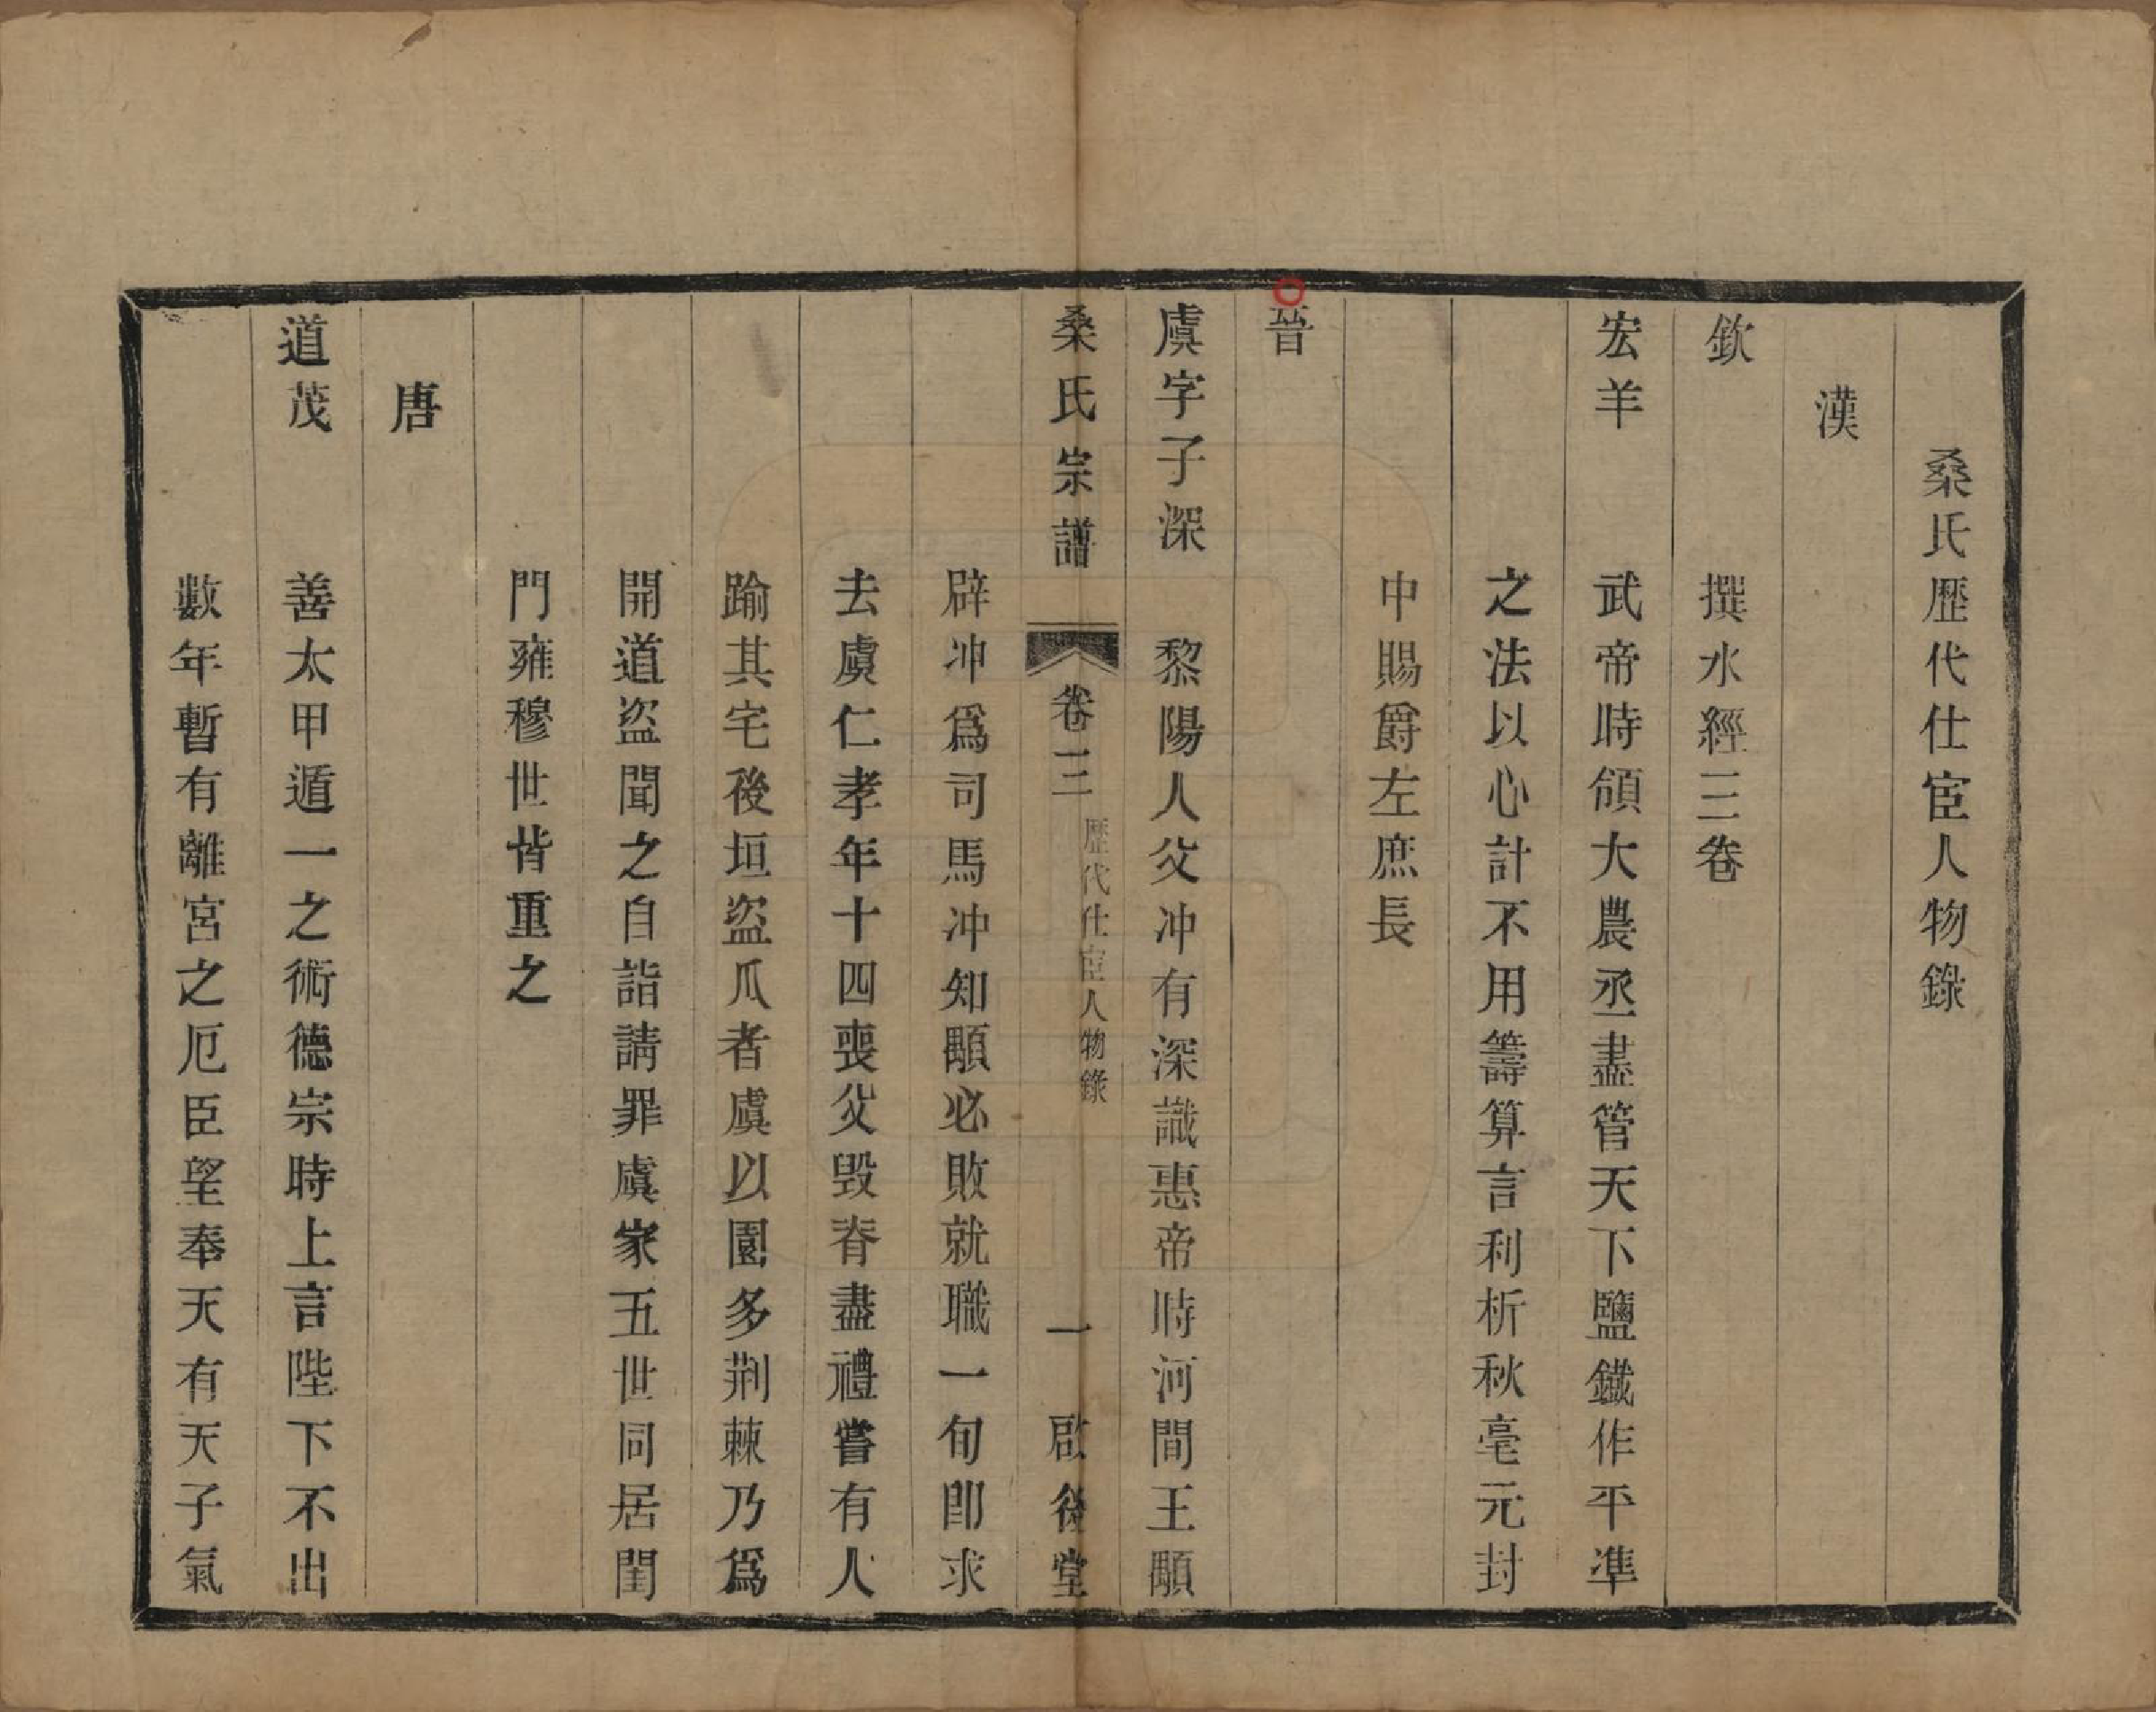 桑氏歷代仕宦人物錄
漢
欽 撰水經三卷
宏羊 武帝時領大農丞盡管天下鹽鐵作平準
之法以心計不用籌算言利析秋毫元封
中賜爵左庶長
晉
虞字子深 黎陽人父冲有深識惠帝時河間王顒
桑氏宗譜 卷三 歷代仕宦人物錄 一 啟後堂
辟冲爲司馬冲知顒必敗就職一旬卽求
去虞仁孝年十四喪父毀脊盡禮嘗有人
踰其宅後垣盜瓜者虞以園多荆棘乃爲
開道盜聞之自詣請罪虞家五世同居閨
門雍穆世皆重之
唐
道茂 善太甲遁一之術德宗時上言陛下不出
數年暫有離宮之厄臣望奉天有天子氣